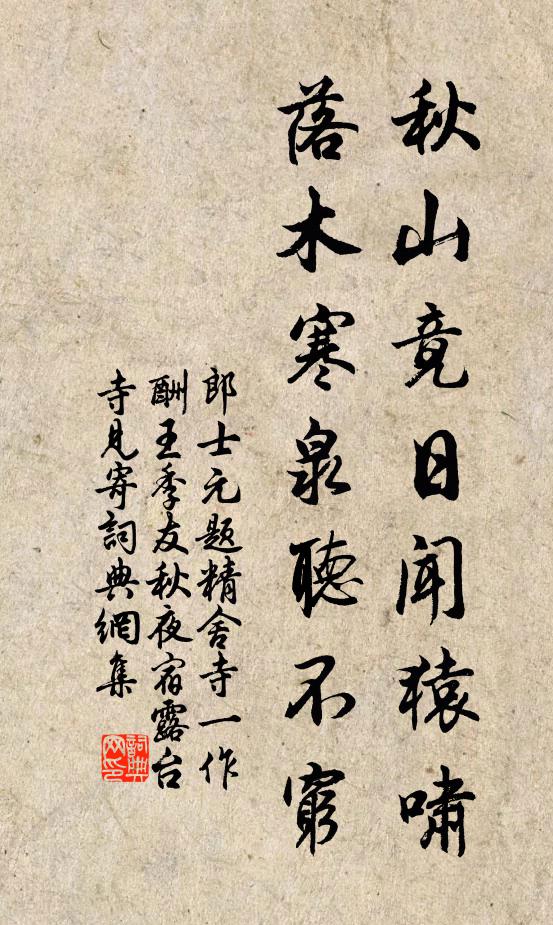 秋山竟日聞猿嘯
落木寒泉聽不窮
郎士元題精舍寺一作
酬王季友秋夜宿露台
寺見寄詞典網集
詞典
网印